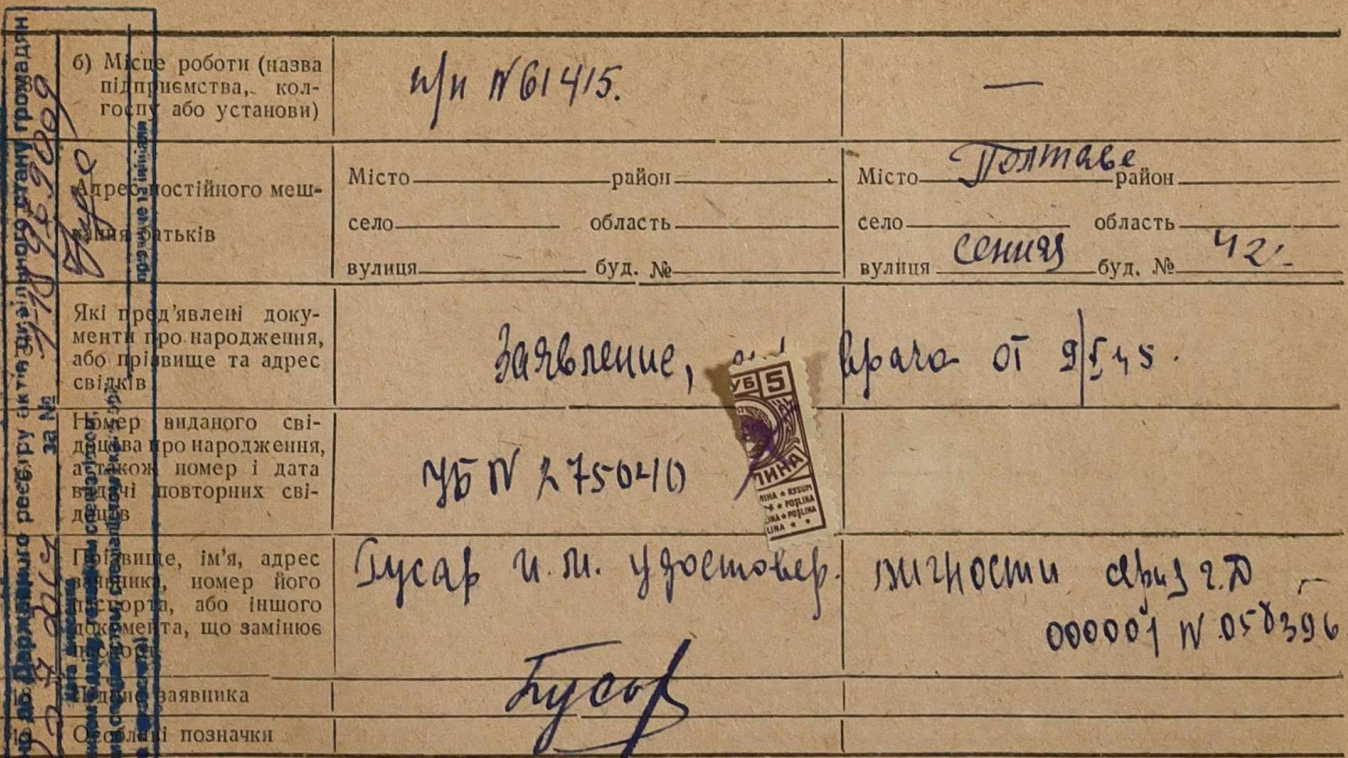 б) Місце роботи (назва
підприємства, кол-
госпу або установи)
п/п N 61415.
—
Адрес постійного меш-
кання батьків
Місто район
село область
вулиця буд. №
Місто Полтаве район
село область
вулиця сенная буд. № 42.
Які пред'явлені доку-
менти про народження,
або прізвище та адрес
свідків
Заявление, врача от 9/I 45.
Номер виданого сві-
доцтва про народження,
а також номер і дата
видачі повторних сві-
доцтв
УБ N 275040
УБ 5
ЛИНА
Прізвище, ім'я, адрес
заявника, номер його
паспорта, або іншого
документа, що замінює
паспорт
Бусар И. М. удостовер. личности
N 058396
Підпис заявника
Бусар
Особливі позначки
Державного реєстру актів цивільного стану громадян
за №